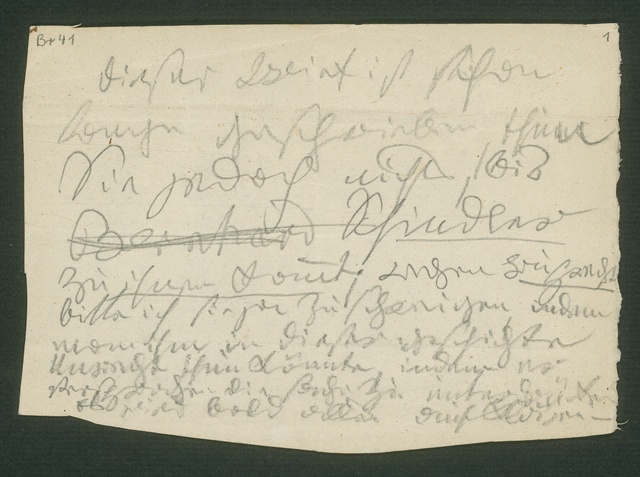 Br 41
1
dieser Brief ist schon
lange geschrieben, thun
Sie jedoch nichts, bis
Bernhard Schindler
zu ihnen kömt, wegen
bitte ich sie zu schweigen, indem
man ihm in dieser geschichte
Unrecht thun könnte, indem er
die sache zu
bald alles aufklären —